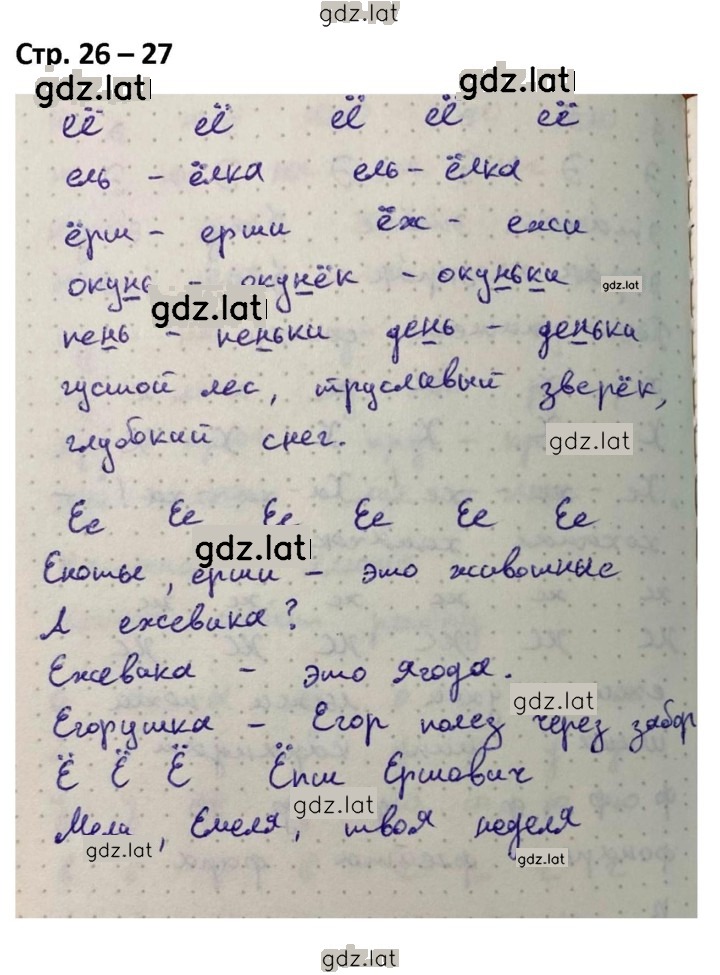 gdz.lat
Стр. 26 – 27
gdz.lat gdz.lat
её её её её её
ель – ёлка ель – ёлка
ёрш – ерши ёж – ежи
окунь – окунёк – окуньки
gdz.lat gdz.lat
пень – пеньки день – деньки
густой лес, трусливый зверёк,
глубокий снег.
gdz.lat
Ее Ее Ее Ее Ее Ее
gdz.lat
Еноты, ерши – это животные
А ежевика?
Ежевика – это ягода.
gdz.lat
Егорушка – Егор полез через забор
Ё Ё Ё Ёрш Ершович
gdz.lat
Мели, Емеля, твоя неделя
gdz.lat gdz.lat
gdz.lat